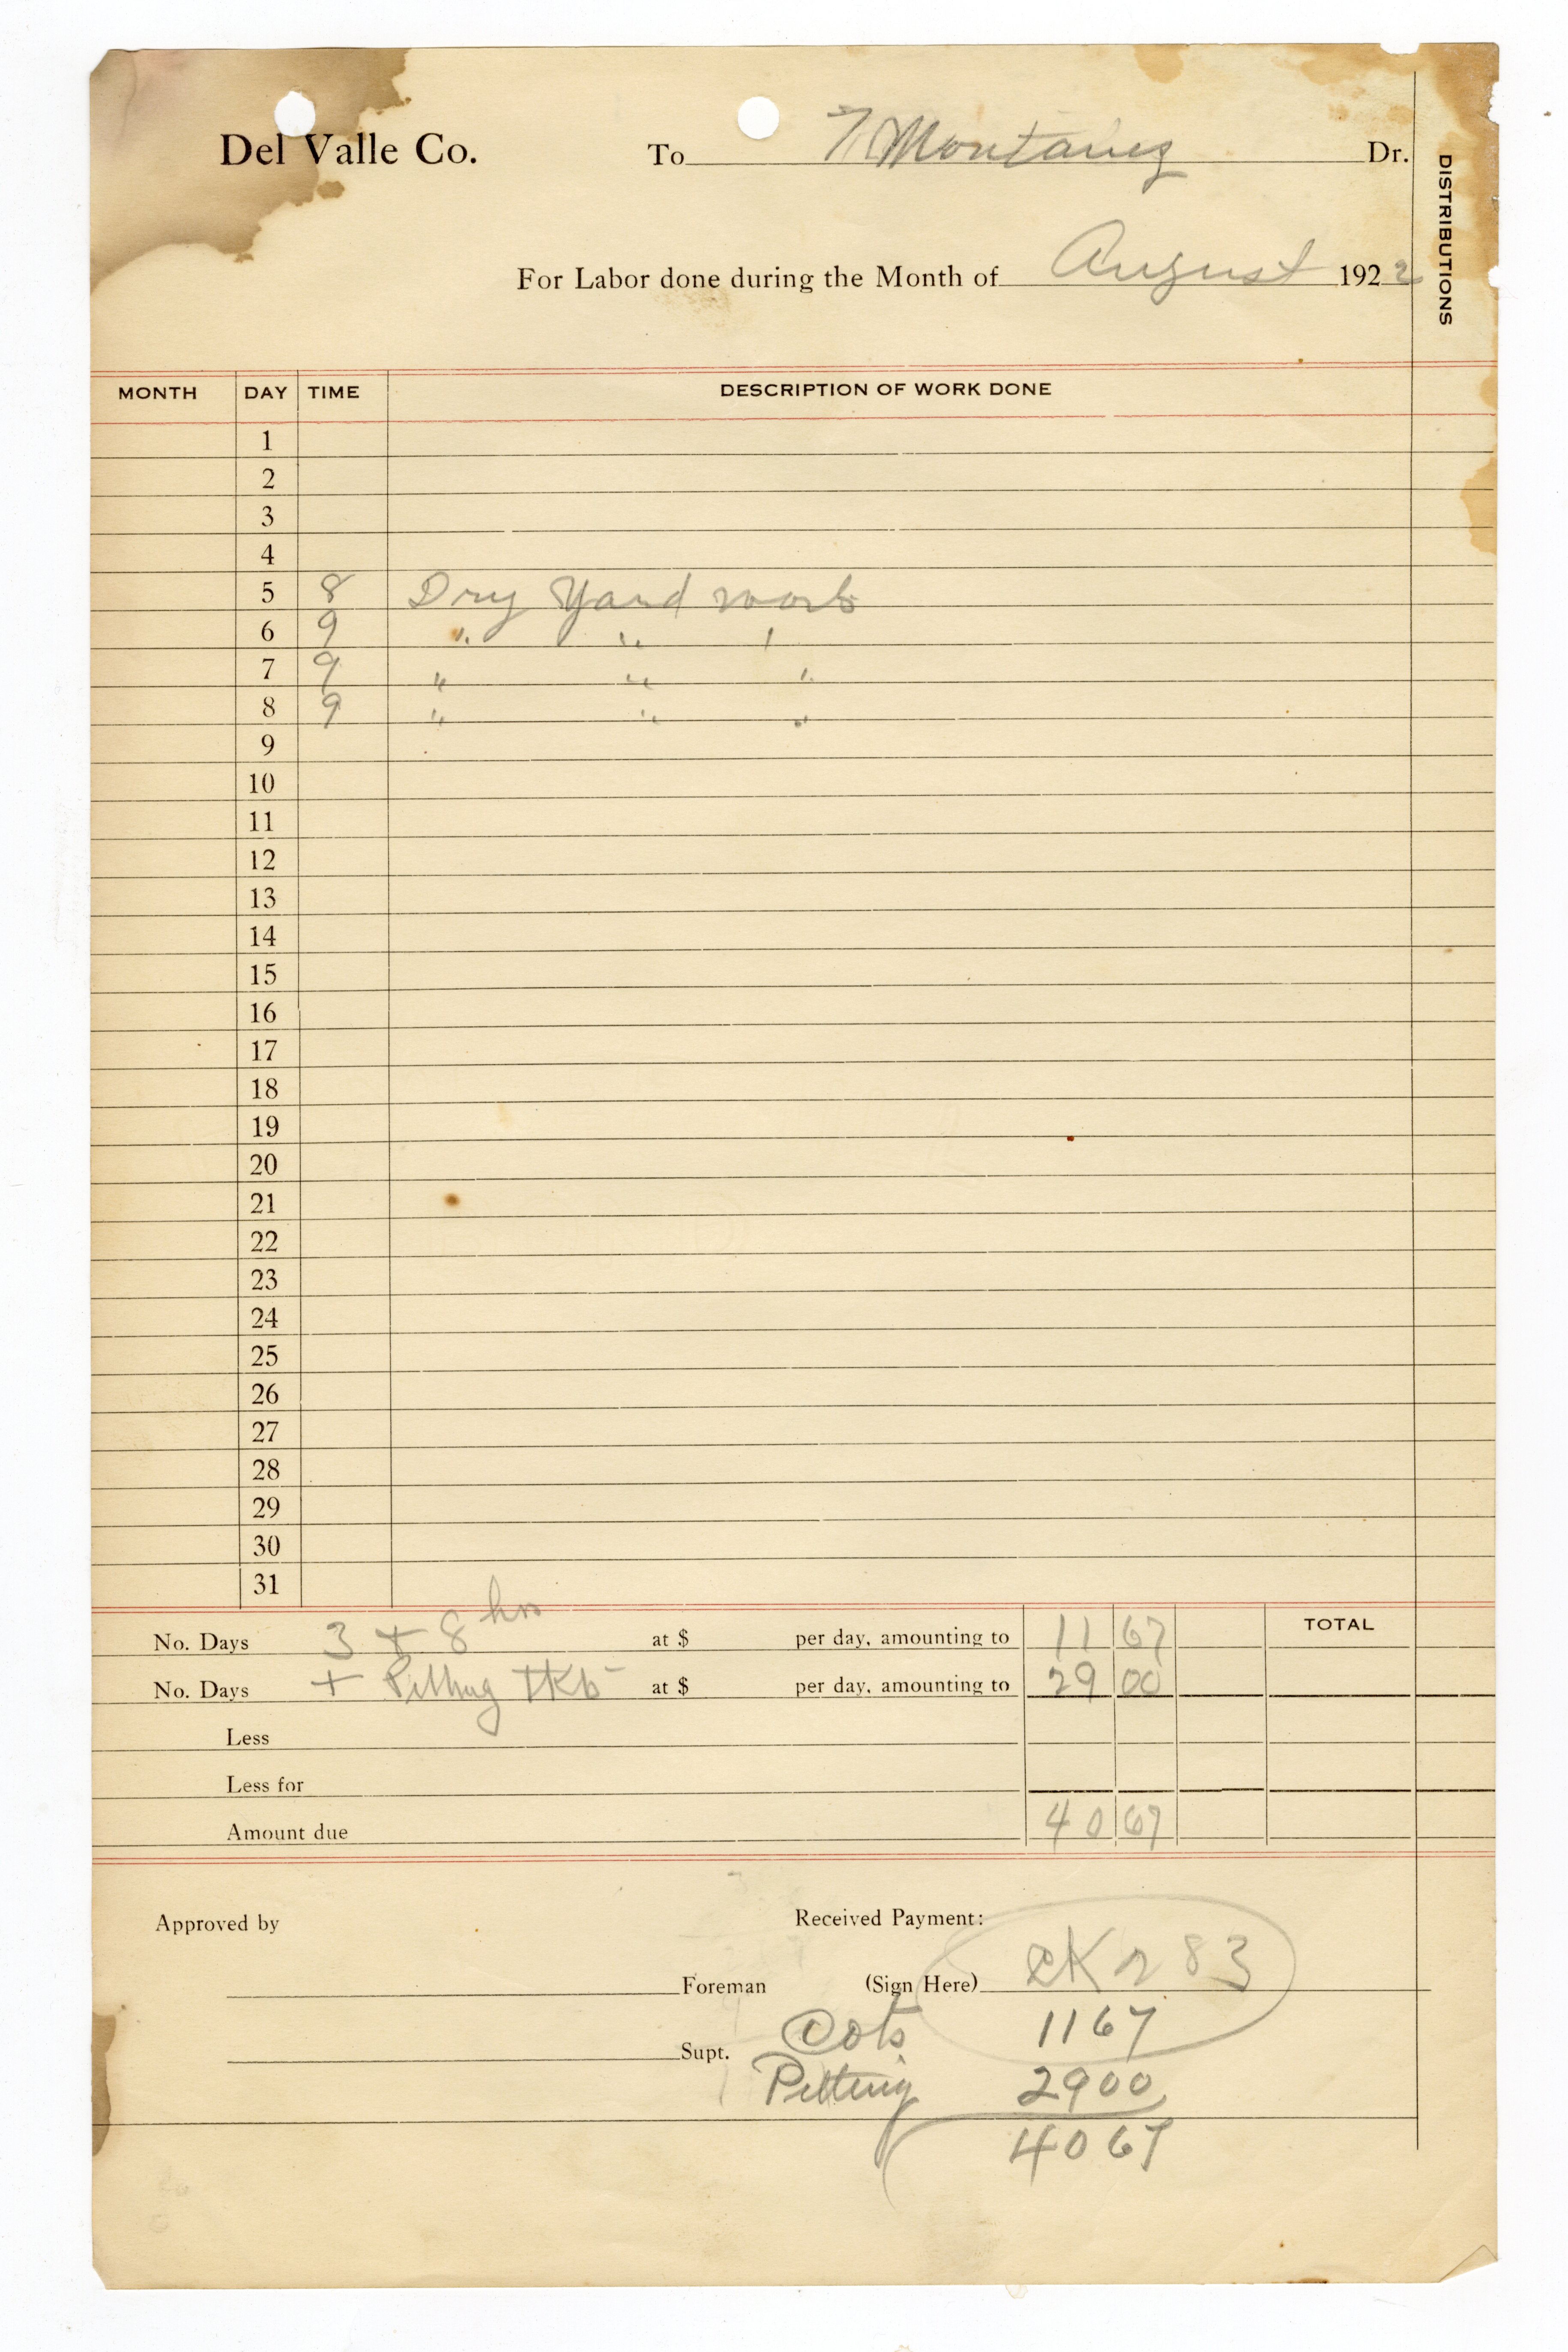 Del Valle Co. To F Montanez Dr.
DISTRIBUTIONS
For Labor done during the Month of August 1922
MONTH DAY TIME DESCRIPTION OF WORK DONE
1
2
3
4
5 8 Dry Yard work
6 9 " " "
7 9 " " "
8 9 " " "
9
10
11
12
13
14
15
16
17
18
19
20
21
22
23
24
25
26
27
28
29
30
31
No. Days 3 + 8 hrs at $ per day, amounting to 11 67 TOTAL
No. Days + Pitting at $ per day, amounting to 29 00
Less
Less for
Amount due 40 67
Approved by Received Payment:
Foreman (Sign Here) CK 283
Supt. Cots 1167
Pitting 2900
4067